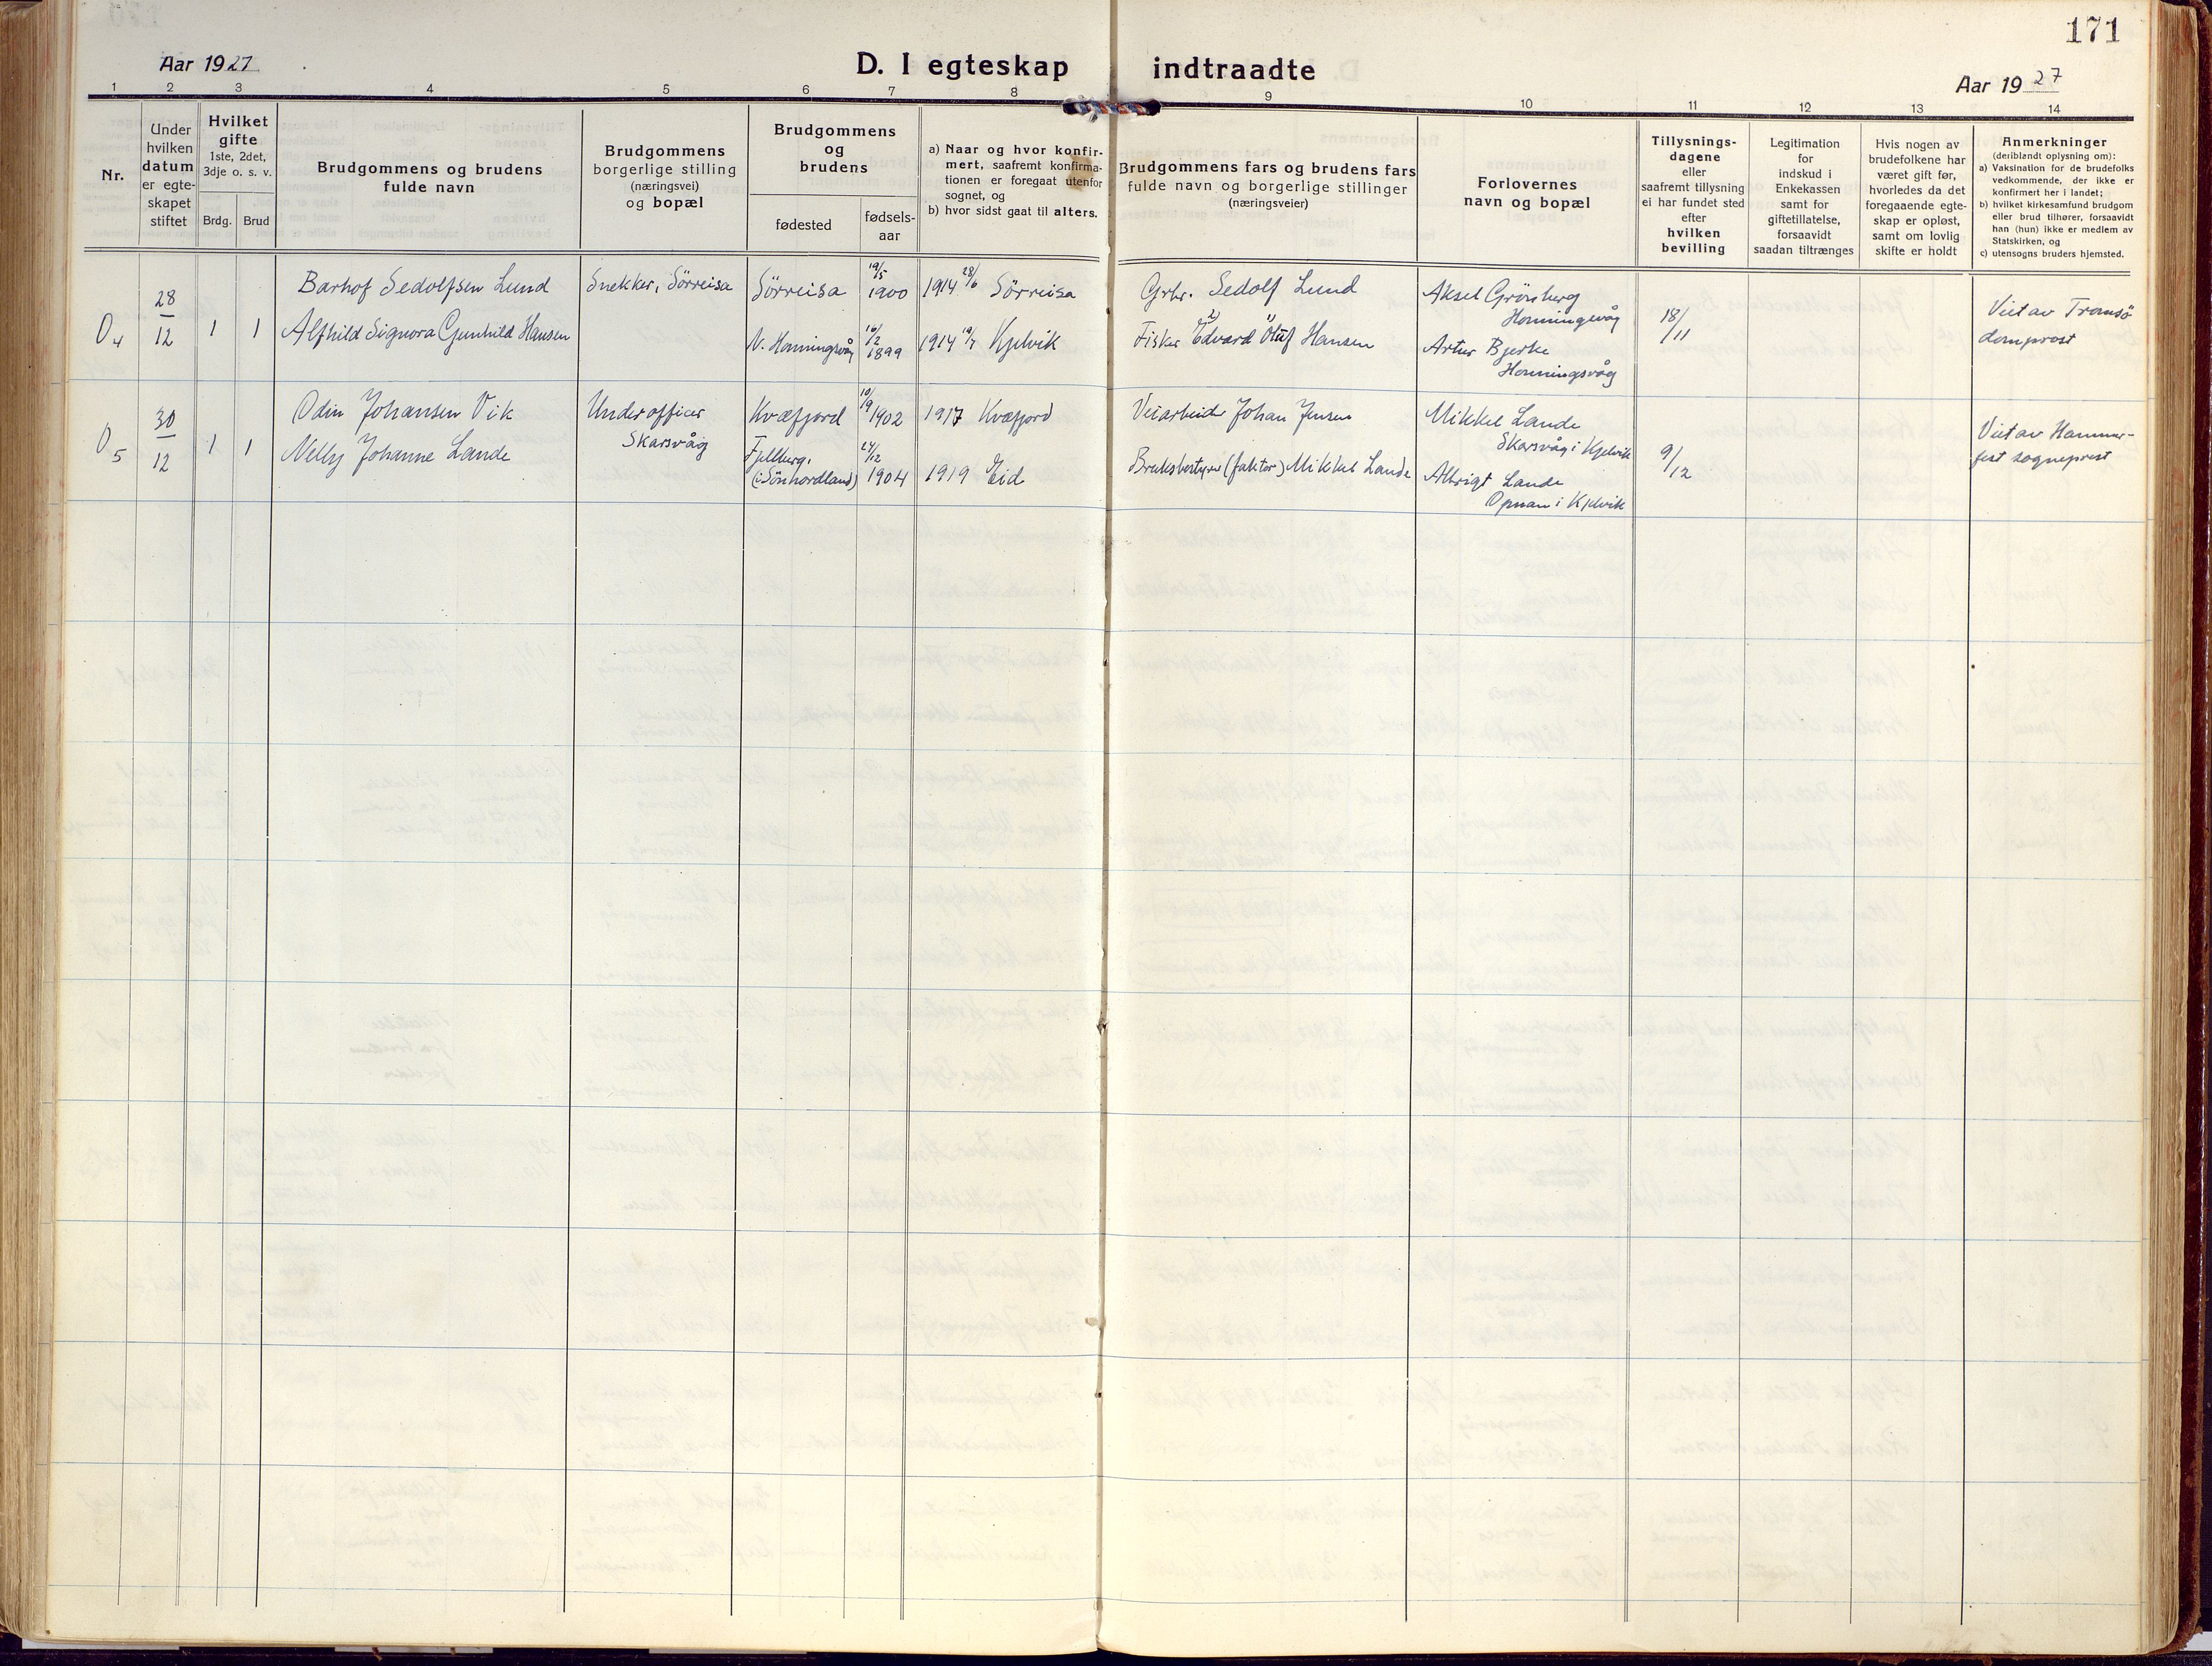 171
Aar 1927
D. I egteskap indtraadte
Aar 1927
1 2 3 4 5 6 7 8 9 10 11 12 13 14
Nr.
Under
hvilken
datum
er egte-
skapet
stiftet
Hvilket
gifte
1ste, 2det,
3dje o. s. v.
Brdg. Brud
Brudgommens og brudens
fulde navn
Brudgommens
borgerlige stilling
(næringsvei)
og bopæl
Brudgommens
og
brudens
fødested
fødsels-
aar
a) Naar og hvor konfir-
mert, saafremt konfirma-
tionen er foregaat utenfor
sognet, og
b) hvor sidst gaat til alters.
Brudgommens fars og brudens fars
fulde navn og borgerlige stillinger
(næringsveier)
Forlovernes
navn og bopæl
Tillysnings-
dagene
eller
saafremt tillysning
ei har fundet sted
efter
hvilken
bevilling
Legitimation
for
indskud i
Enkekassen
samt for
giftetillatelse,
forsaavidt
saadan tiltrænges
Hvis nogen av
brudefolkene har
været gift før,
hvorledes da det
foregaaende egte-
skap er opløst,
samt om lovlig
skifte er holdt
Anmerkninger
(deriblandt oplysning om):
a) Vaksination for de brudefolks
vedkommende, der ikke er
konfirmert her i landet;
b) hvilket kirkesamfund brudgom
eller brud tilhører, forsaavidt
han (hun) ikke er medlem av
Statskirken, og
c) utensogns bruders hjemsted.
04
28
12
1 1
Barhof Sedolfsen Lund
Alfhild Signora Gunhild Hansen
Snekker, Sörreisa
Sörreisa
19/5
1900
1914 28/6 Sörreisa
N. Honningsvåg
16/2
1899
1914 19/7 Kjelvik
Grbr. Sedolf Lund
Fisker Edvard Oluf Hansen
2) 1)
Aksel Grönberg
Honningsvåg
Artur Bjerke
Honningsvåg
18/
/11
Viet av Tromsö
domprost
05
30
12
1 1
Odin Johansen Vik
Nelly Johanne Lande
Underofficer
Skarsvåg
Kvæfjord
10/9 1902
1917 Kvæfjord
Fjellberg,
(i Sönhordland)
24/12
1904
1919 Eid
Veiarbeider Johan Jensen
Bruksbestyrer (faktor) Mikkel Lande
Mikkel Lande
Skarsvåg i Kjelvik
Albrigt Lande
Opnan i Kjelvik
9/
/12
Viet av Hammer-
fest sogneprest